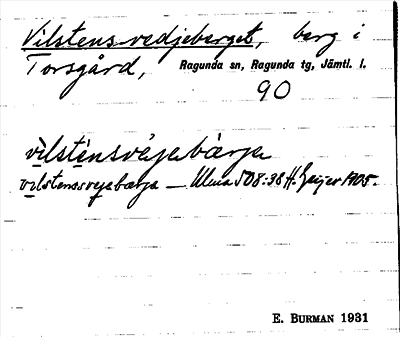 Vilstens vedjeberget, berg i
Torsgård, Ragunda sn, Ragunda tg, Jämtl. l.
90
vìlsténsvéjabàrja
vilstenssvejabærja — Ulma 508:38 H. Geijer 1905.
E. BURMAN 1931